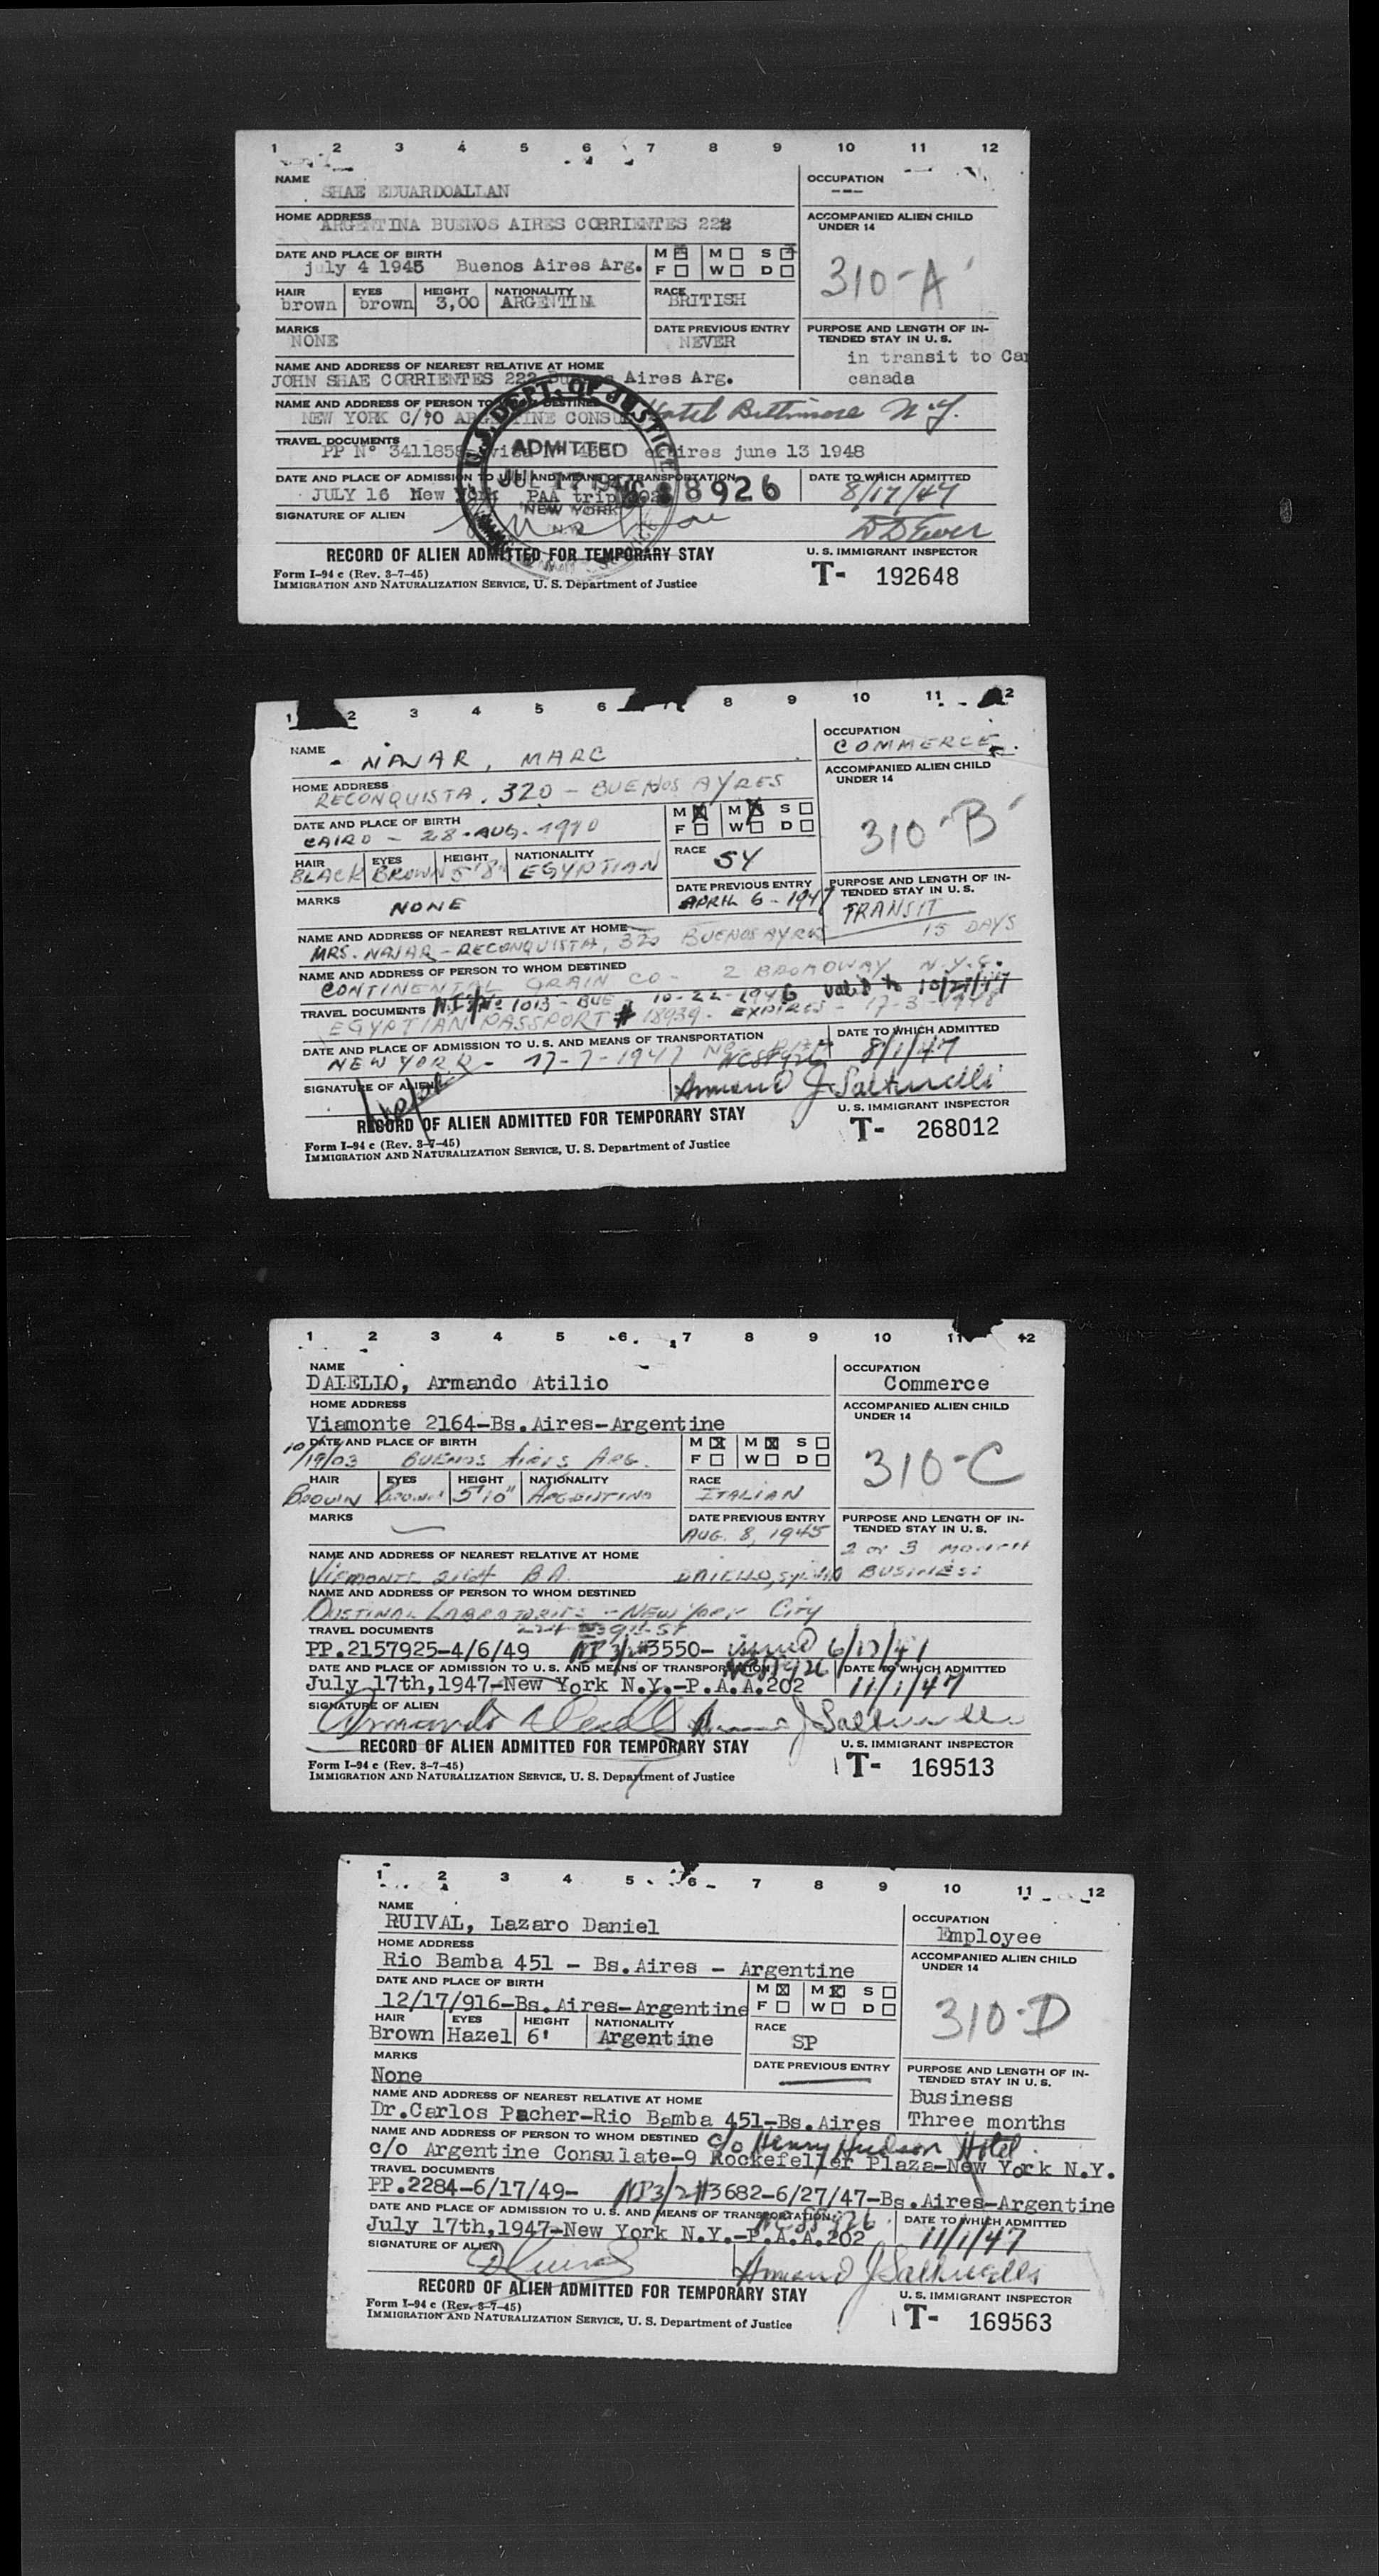 1 2 3 4 5 6 7 8 9 10 11 12
NAME SHAE EDUARDOALLAN
OCCUPATION ---
HOME ADDRESS ARGENTINA BUENOS AIRES CORRIENTES 222
ACCOMPANIED ALIEN CHILD UNDER 14
310-A
DATE AND PLACE OF BIRTH july 4 1945 Buenos Aires Arg.
M F M W S D
HAIR brown EYES brown HEIGHT 3,00 NATIONALITY ARGENTIN RACE BRITISH
MARKS NONE
DATE PREVIOUS ENTRY NEVER
PURPOSE AND LENGTH OF INTENDED STAY IN U. S.
in transit to Can
canada
NAME AND ADDRESS OF NEAREST RELATIVE AT HOME
JOHN SHAE CORRIENTES 222 Buenos Aires Arg.
NAME AND ADDRESS OF PERSON TO WHOM DESTINED
NEW YORK C/O ARGENTINE CONSU Hotel Biltimore N.Y.
TRAVEL DOCUMENTS
PP Nº 3411858 expires june 13 1948
U.S. DEPT. OF JUSTICE
ADMITTED
JUL 17 194
NEW YORK
N.Y.
DATE AND PLACE OF ADMISSION TO U. S. AND MEANS OF TRANSPORTATION
JULY 16 New York PAA trip 202 NC 88926
DATE TO WHICH ADMITTED 8/17/47
SIGNATURE OF ALIEN
RECORD OF ALIEN ADMITTED FOR TEMPORARY STAY
U. S. IMMIGRANT INSPECTOR
Form I-94 c (Rev. 3-7-45)
IMMIGRATION AND NATURALIZATION SERVICE, U. S. Department of Justice
T- 192648
1 2 3 4 5 6 7 8 9 10 11 12
NAME - NAJAR, MARC
OCCUPATION COMMERCE.
HOME ADDRESS RECONQUISTA. 320 - BUENOS AYRES
ACCOMPANIED ALIEN CHILD UNDER 14
310-B
DATE AND PLACE OF BIRTH CAIRO - 28-AUG-1910
M F M W S D
HAIR BLACK EYES BROWN HEIGHT 5'8" NATIONALITY EGYPTIAN RACE SY
MARKS NONE
DATE PREVIOUS ENTRY APRIL 6-1947
PURPOSE AND LENGTH OF INTENDED STAY IN U. S.
TRANSIT
15 DAYS
NAME AND ADDRESS OF NEAREST RELATIVE AT HOME
MRS. NAJAR - RECONQUISTA, 320 BUENOS AYRES
NAME AND ADDRESS OF PERSON TO WHOM DESTINED
CONTINENTAL GRAIN CO - 2 BROADWAY N.Y.C.
1013 - BUE - 10-22-1946 valid to 10/21/47
TRAVEL DOCUMENTS
EGYPTIAN PASSPORT # 18939 - EXPIRES - 17-3-1948
DATE AND PLACE OF ADMISSION TO U. S. AND MEANS OF TRANSPORTATION
NEW YORK - 17-7-1947 NC88926
DATE TO WHICH ADMITTED 8/1/47
SIGNATURE OF ALIEN
Armand J. Salturelli
RECORD OF ALIEN ADMITTED FOR TEMPORARY STAY
U. S. IMMIGRANT INSPECTOR
Form I-94 c (Rev. 3-7-45)
IMMIGRATION AND NATURALIZATION SERVICE, U. S. Department of Justice
T- 268012
1 2 3 4 5 6 7 8 9 10 11 12
NAME DAIELLO, Armando Atilio
OCCUPATION Commerce
HOME ADDRESS Viamonte 2164-Bs.Aires-Argentine
ACCOMPANIED ALIEN CHILD UNDER 14
310-C
DATE AND PLACE OF BIRTH 10/19/03 BUENOS AIRES ARG.
M F M W S D
HAIR BROWN EYES BROWN HEIGHT 5'10" NATIONALITY ARGENTINO RACE ITALIAN
MARKS
DATE PREVIOUS ENTRY AUG. 8, 1945
PURPOSE AND LENGTH OF INTENDED STAY IN U. S.
2 or 3 MONTH
BUSINESS
NAME AND ADDRESS OF NEAREST RELATIVE AT HOME
VIAMONTE 2164 B.A. DAIELLO,
NAME AND ADDRESS OF PERSON TO WHOM DESTINED
LABORATORIES - NEW YORK City
TRAVEL DOCUMENTS
PP.2157925-4/6/49 NP 3/2 #3550- issued 6/17/47
DATE AND PLACE OF ADMISSION TO U. S. AND MEANS OF TRANSPORTATION
NC88926
July 17th,1947-New York N.Y.-P.A.A.202
DATE TO WHICH ADMITTED 11/1/47
SIGNATURE OF ALIEN
Armando Daiello Armand J Salturelli
RECORD OF ALIEN ADMITTED FOR TEMPORARY STAY
U. S. IMMIGRANT INSPECTOR
Form I-94 c (Rev. 3-7-45)
IMMIGRATION AND NATURALIZATION SERVICE, U. S. Department of Justice
T- 169513
1 2 3 4 5 6 7 8 9 10 11 12
NAME RUIVAL, Lazaro Daniel
OCCUPATION Employee
HOME ADDRESS Rio Bamba 451 - Bs.Aires - Argentine
ACCOMPANIED ALIEN CHILD UNDER 14
310-D
DATE AND PLACE OF BIRTH 12/17/916-Bs.Aires-Argentine
M F M W S D
HAIR Brown EYES Hazel HEIGHT 6' NATIONALITY Argentine RACE SP
MARKS None
DATE PREVIOUS ENTRY
PURPOSE AND LENGTH OF INTENDED STAY IN U. S.
Business
Three months
NAME AND ADDRESS OF NEAREST RELATIVE AT HOME
Dr.Carlos Pacher-Rio Bamba 451-Bs.Aires
NAME AND ADDRESS OF PERSON TO WHOM DESTINED c/o Henry Hudson Hotel
c/o Argentine Consulate-9 Rockefeller Plaza-New York N.Y.
TRAVEL DOCUMENTS
PP.2284-6/17/49- NP3/2 #3682-6/27/47-Bs.Aires-Argentine
DATE AND PLACE OF ADMISSION TO U. S. AND MEANS OF TRANSPORTATION
NC88926
July 17th,1947-New York N.Y.-P.A.A.202
DATE TO WHICH ADMITTED 11/1/47
SIGNATURE OF ALIEN
DRuival Armand J Salturelli
RECORD OF ALIEN ADMITTED FOR TEMPORARY STAY
U. S. IMMIGRANT INSPECTOR
Form I-94 c (Rev. 3-7-45)
IMMIGRATION AND NATURALIZATION SERVICE, U. S. Department of Justice
T- 169563